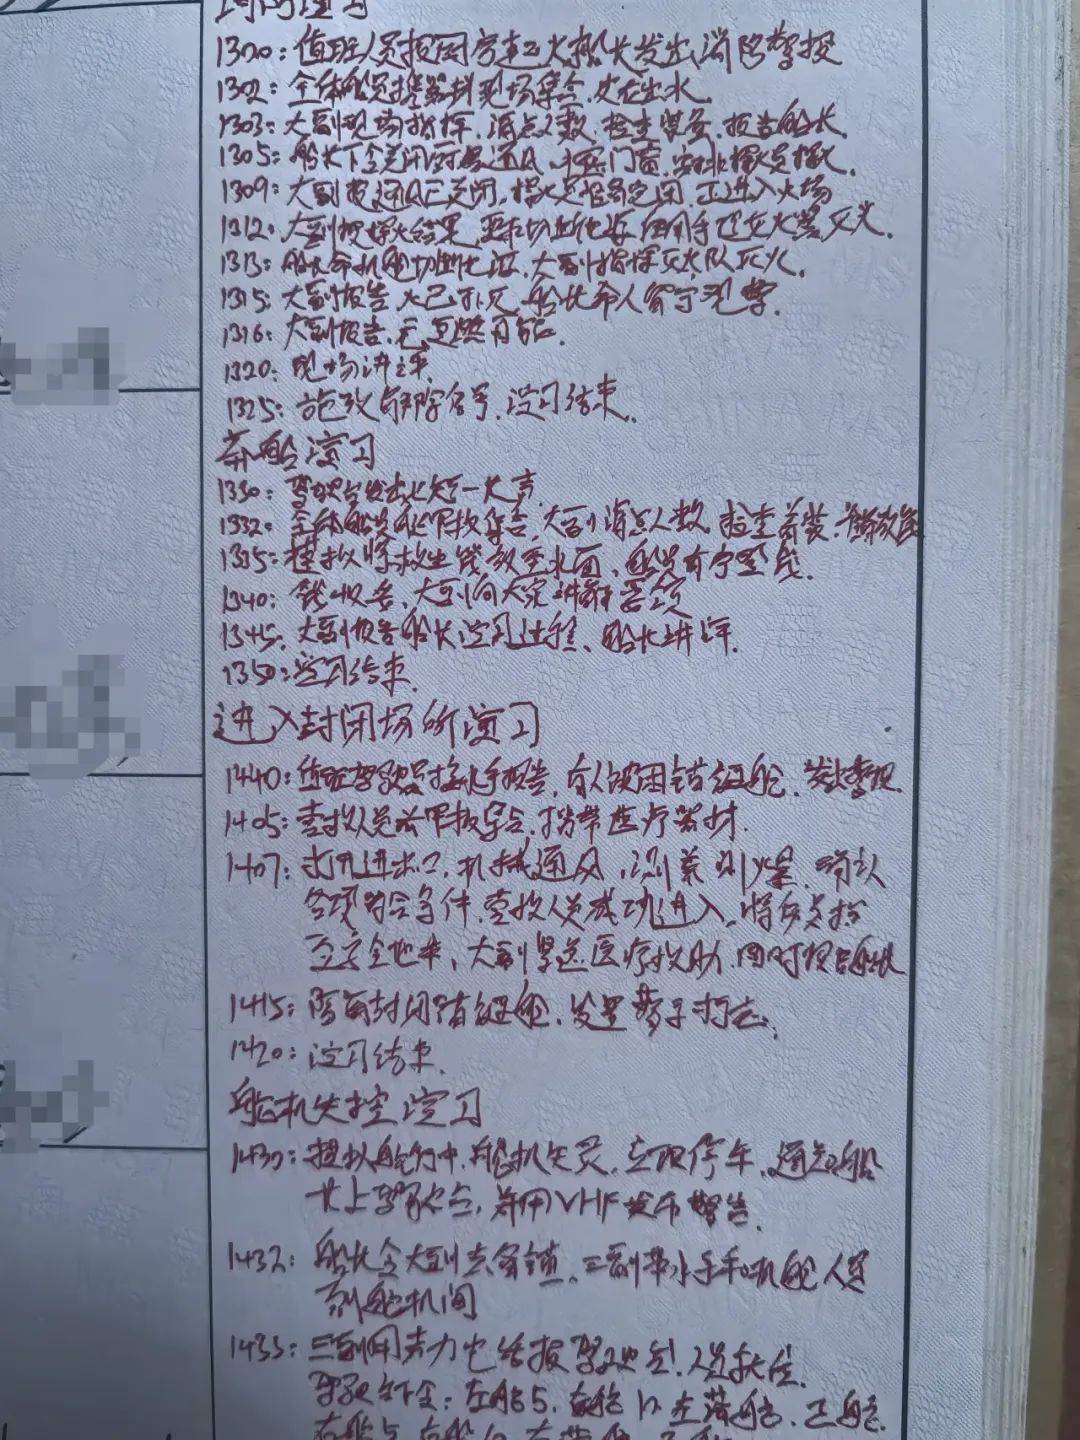 消防演习
1300：值班人员报厨房起火船长发出消防警报
1302：全体船员携器材现场集合，皮龙出水。
1303：大副现场指挥，清点人数，检查装备，报告船长。
1305：船长下令关闭厨房通风，水密门窗，安排探火员探火。
1309：大副报通风已关闭，探火员准备完毕，正进入火场
1312：大副报探火结果，要求切断电源使用手提灭火器灭火。
1313：船长命机舱切断电源，大副指挥灭火队灭火。
1315：大副报告火已扑灭，船长命人留守观察
1316：大副报告，无复燃可能。
1320：现场讲评
1325：施放解除信号，演习结束。
弃船演习
1330：驾驶台发出七短一长声
1332：全体船员艇甲板集合，大副清点人数，检查着装，
1335：模拟将救生艇放至水面，船员有序登艇。
1340：艇收妥，大副向大家讲解
1345：大副报告船长演习过程，船长讲评。
1350：演习结束
进入封闭场所演习
1440：值班驾驶员接水手报告，有人被困锚链舱，发出警报
1405：救援人员在甲板集合，携带医疗器材。
1407：打开进出口，机械通风，测氧测爆，确认
各项符合条件，救援人员成功进入，将伤员抬
至安全地带，大副紧急医疗救助，同时报告船长
1415：随后封闭锚链舱，
1420：演习结束
舵机失控演习
1430：模拟航行中，舵机失灵，立即停车，通知船
长上驾驶台，并用VHF发布警告。
1432：船长令大副去备锚，二副带水手和机舱人员
到舵机间
1433：二副用声力电话报驾驶台，人员就位。
驾驶台下令：左舵5，右舵10，左满舵，正舵